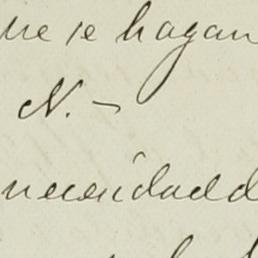 ue se hagan
N. –
necesidad d